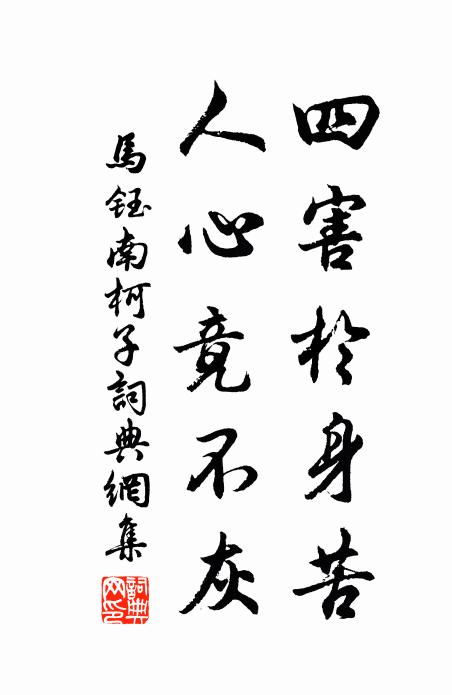 四害於身苦
人心竟不灰
馬鈺南柯子詞典網集
詞典網印